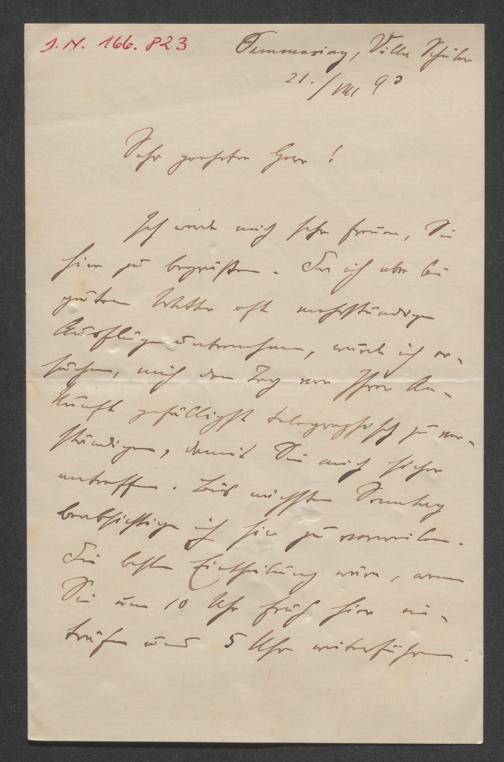 J. N. 166.823
Semmering, Villa Schüler
21./VIII 90
Sehr geehrter Herr!
Ich werde mich sehr freuen, Sie
hier zu begrüßen. Da ich aber bei
gutem Wetter oft mehrstündige
Ausflüge unternehme, würde ich er-
suchen, mich den Tag vor Ihrer An-
kunft gefälligst telegraphisch zu ver-
ständigen, damit Sie mich sicher
antreffen. Bis nächsten Sonntag
beabsichtige ich hier zu verweilen.
Die beste Eintheilung wäre, wenn
Sie um 10 Uhr früh hier ein-
träfen und 5 Uhr weiterführen.